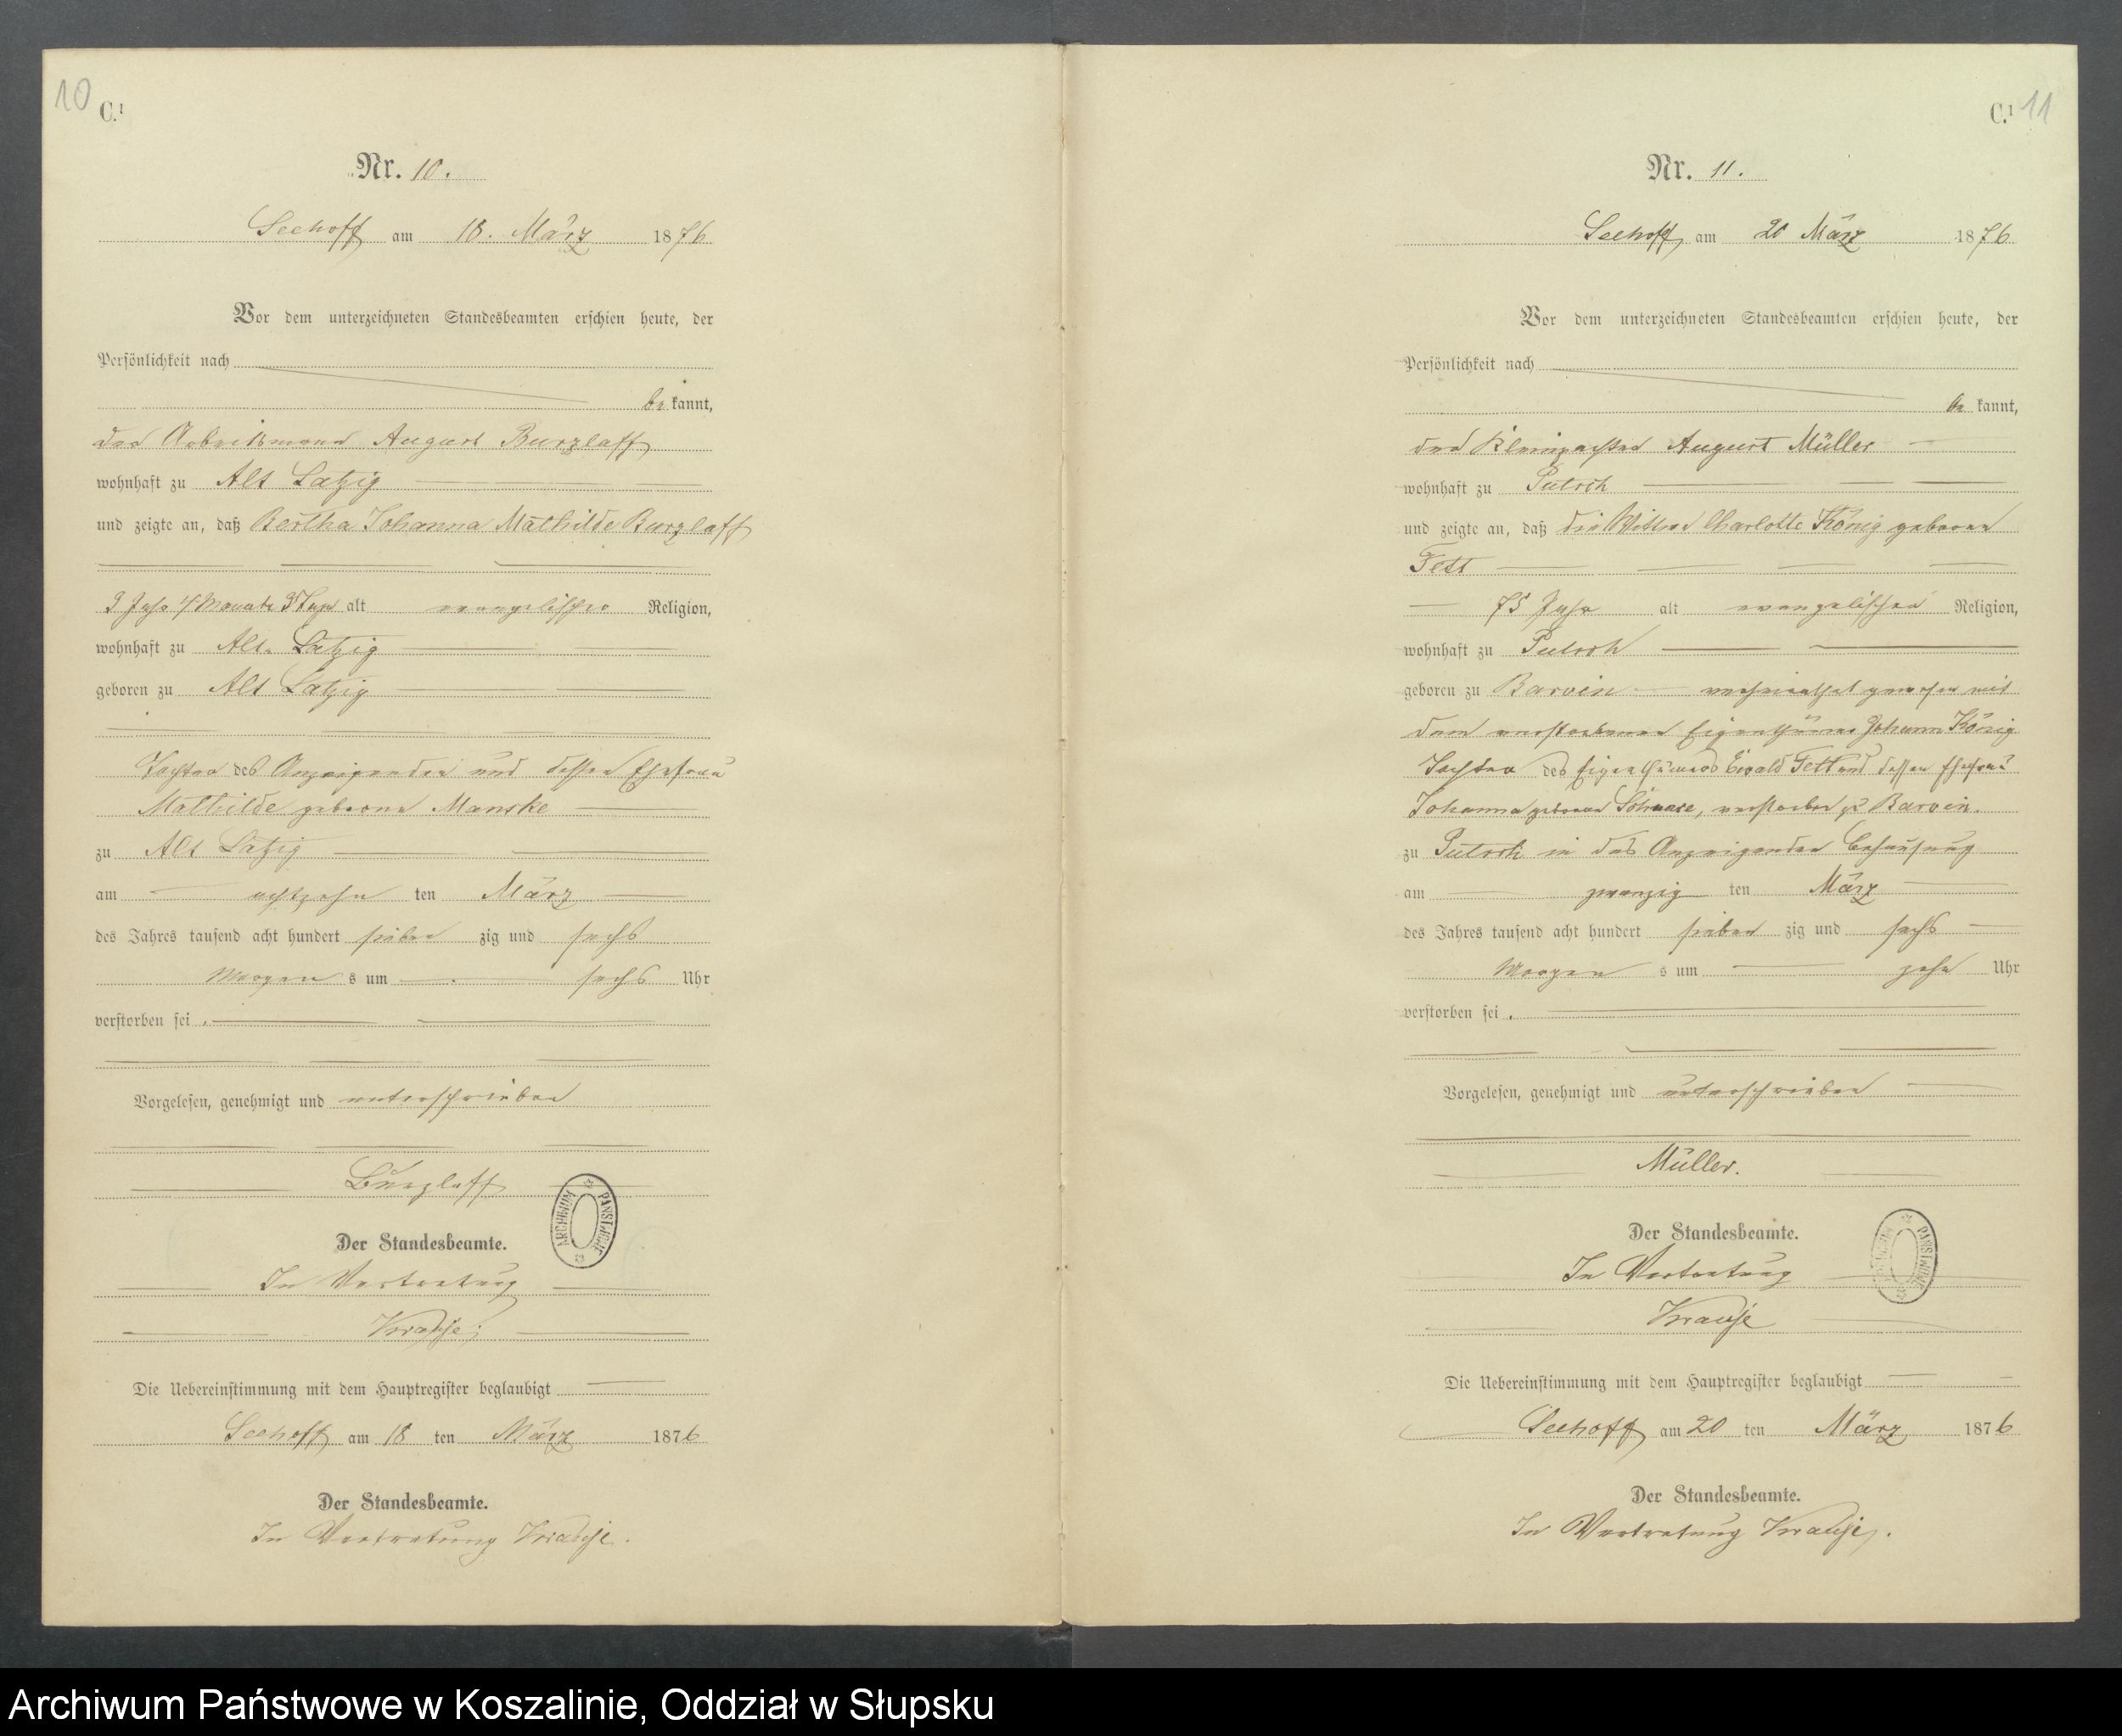 10
C.¹
Nr. 10.
Seehoff am 18. März 1876
Vor dem unterzeichneten Standesbeamten erschien heute, der
Persönlichkeit nach
be kannt,
der Arbeitsmann August Burzlaff
wohnhaft zu Alt Latzig
und zeigte an, daß Bertha Johanna Mathilde Burzlaff
Jahr 4 Monate Tage alt evangelischer Religion,
wohnhaft zu Alt Latzig
geboren zu Alt Latzig
Tochter des Anzeigenden und dessen Ehefrau
Mathilde geborene Manske
zu Alt Latzig
am achtzehn ten März
des Jahres tausend acht hundert sieben zig und sechs
Morgen s um sechs Uhr
verstorben sei .
Vorgelesen, genehmigt und unterschrieben
Burzlaff
ARCHIWUM PAŃSTWOWE
Der Standesbeamte.
In Vertretung
Krause
Die Uebereinstimmung mit dem Hauptregister beglaubigt
Seehoff am 18 ten März 1876
Der Standesbeamte.
In Vertretung Krause.
C.¹ 11
Nr. 11.
Seehoff am 20 März 1876
Vor dem unterzeichneten Standesbeamten erschien heute, der
Persönlichkeit nach
be kannt,
der Kleinpachter August Müller
wohnhaft zu Putsch
und zeigte an, daß die Wittwe Charlotte König geborene
Fett
75 Jahr alt evangelischer Religion,
wohnhaft zu Putsch
geboren zu Barvin verheirathet gewesen mit
dem verstorbenen Eigenthümer Johann König
Tochter des Eigenthümers Ewald Fett und dessen Ehefrau
Johanna geborene verstorben zu Barvin.
zu Putsch in des Anzeigenden Behausung
am zwanzig ten März
des Jahres tausend acht hundert sieben zig und sechs
Morgen s um zehn Uhr
verstorben sei .
Vorgelesen, genehmigt und unterschrieben
Müller.
Der Standesbeamte.
ARCHIWUM PAŃSTWOWE
In Vertretung
Krause
Die Uebereinstimmung mit dem Hauptregister beglaubigt
Seehoff am 20 ten März 1876
Der Standesbeamte.
In Vertretung Krause.
Archiwum Państwowe w Koszalinie, Oddział w Słupsku